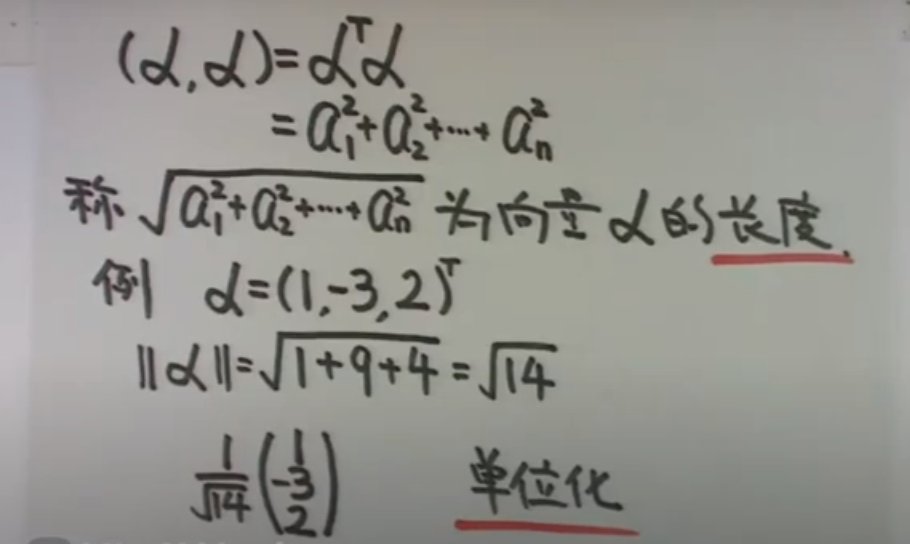 (α,α)=α^Tα
=a₁²+a₂²+···+aₙ²
称√(a₁²+a₂²+···+aₙ²) 为向量α的长度.
例 α=(1,-3,2)^T
||α||=√(1+9+4)=√14
1/√14 (1 -3 2) 单位化